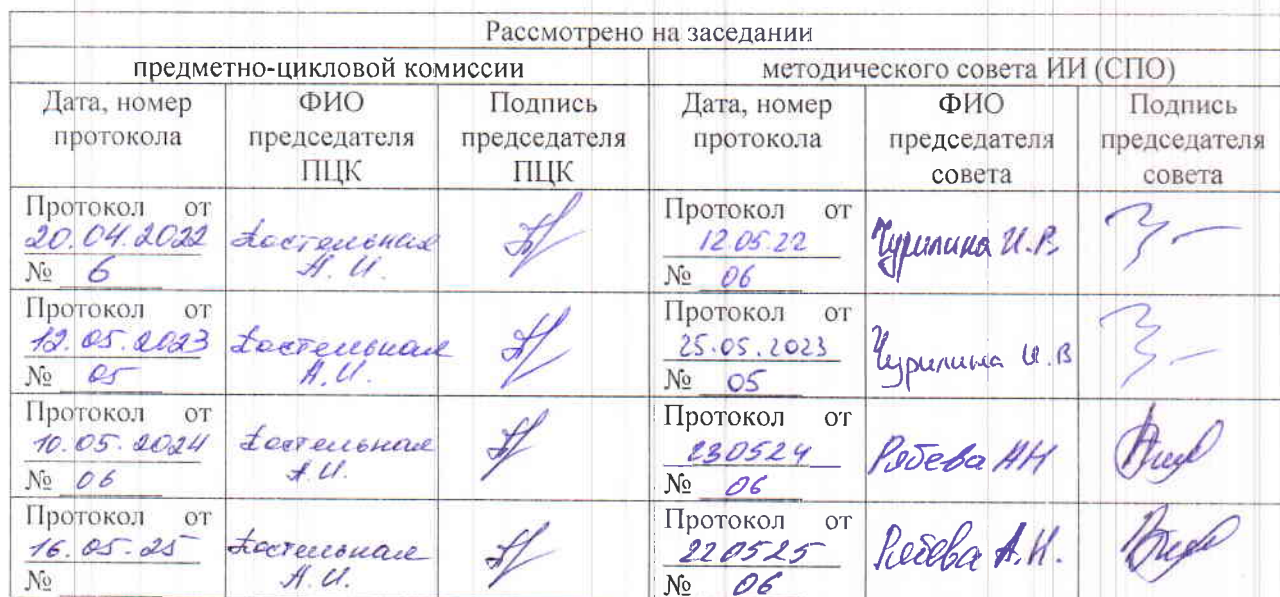 Рассмотрено на заседании
предметно-цикловой комиссии
методического совета ИИ (СПО)
Дата, номер
протокола
ФИО
председателя
ПЦК
Подпись
председателя
ПЦК
Дата, номер
протокола
ФИО
председателя
совета
Подпись
председателя
совета
Протокол от
20.04.2022
№ 6
А. И.
Протокол от
12.05.22
№ 06
Чурилина И.В.
Протокол от
12.05.2023
№ 05
А. И.
Протокол от
25.05.2023
№ 05
Чурилина И.В
Протокол от
10.05.2024
№ 06
А. И.
Протокол от
230524
№ 06
Рябева АН
Протокол от
16.05.25
№
А. И.
Протокол от
220525
№ 06
Рябева А.Н.